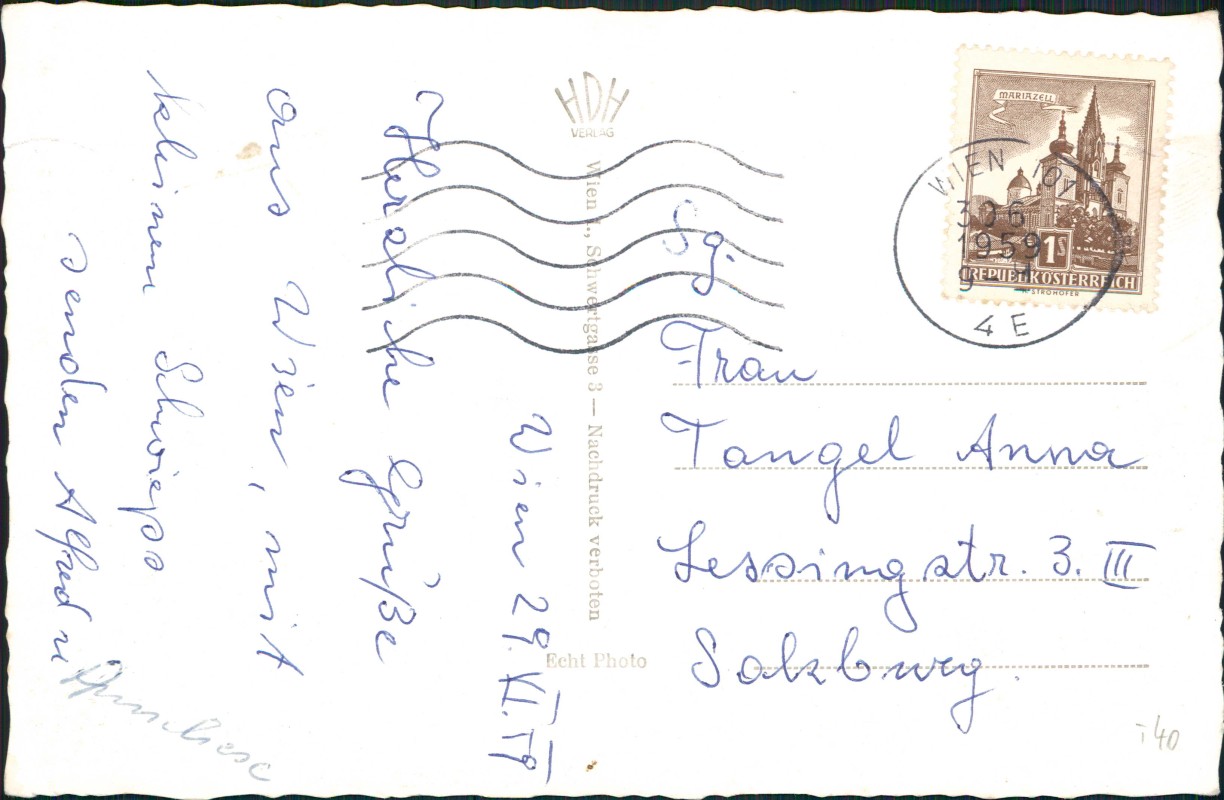 Wien 29. VI. 59
Herzliche Grüße
aus Wien, mit
kleinem Schwips
senden Alfred u
HDH
VERLAG
Wien I., Schwertgasse 3 — Nachdruck verboten
Echt Photo
MARIAZELL
1S
REPUBLIK ÖSTERREICH
R. STROHOFER
WIEN 101
30 6
1959
9
4E
Sg.
Frau
Tangel Anna
Lessingstr. 3. III
Salzburg.
-40